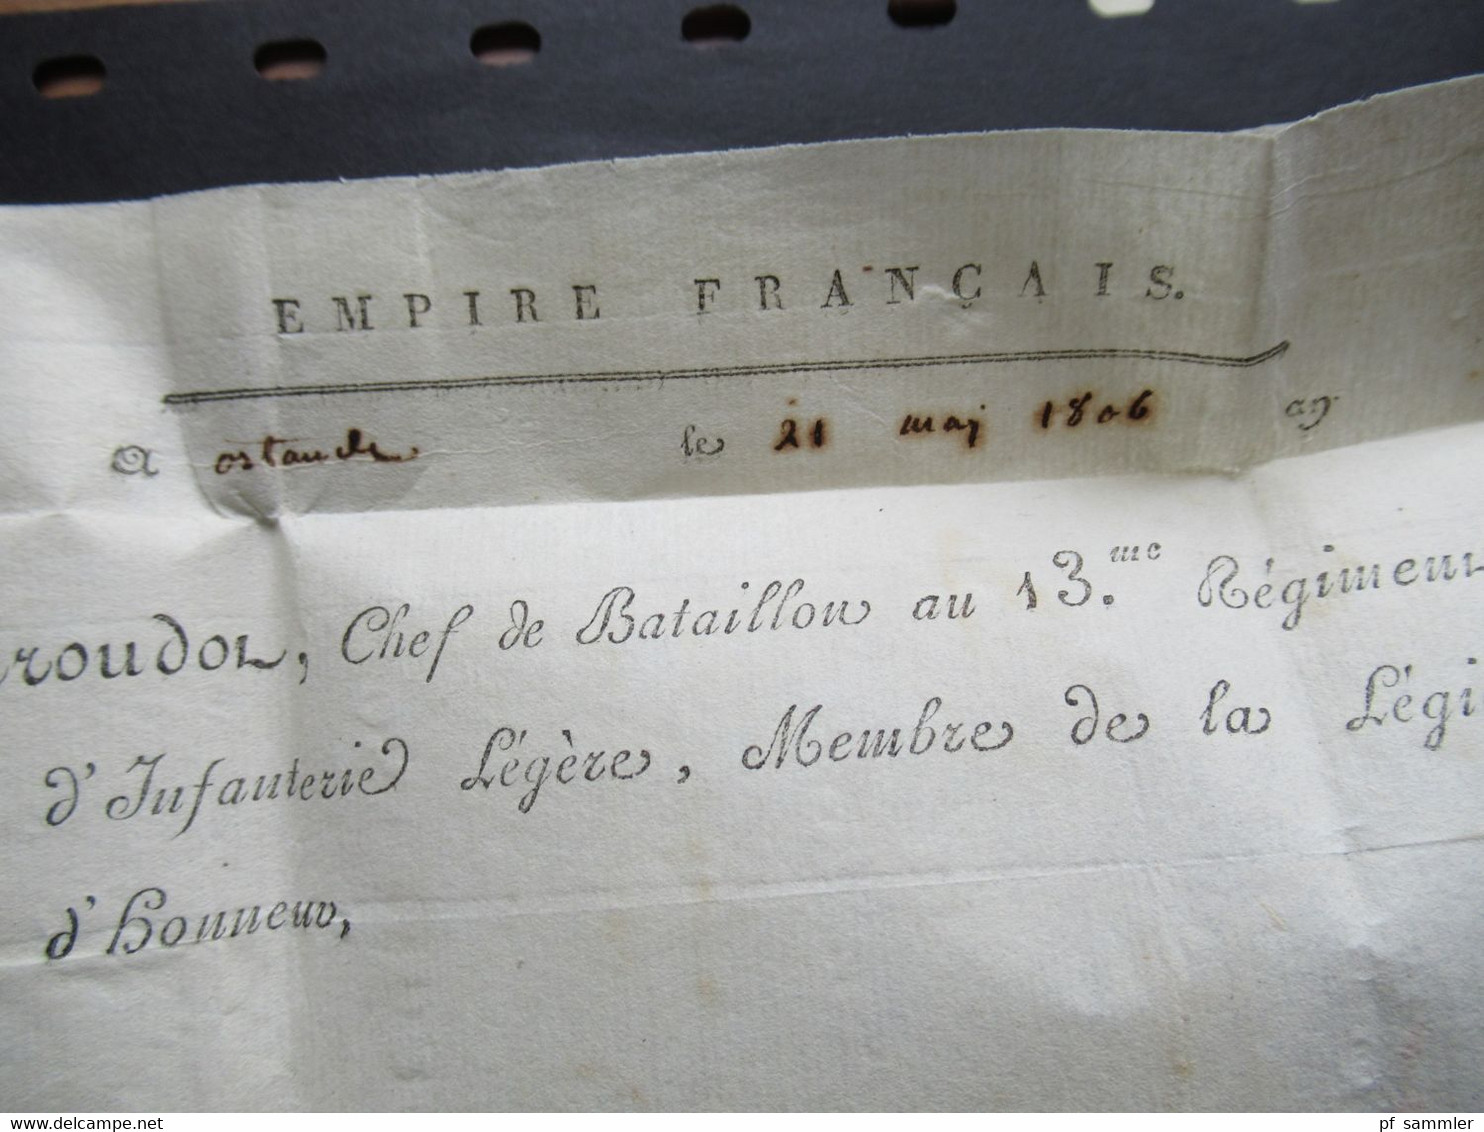 EMPIRE FRANÇAIS.
A ostande le 21 maj 1806 an
roudot, Chef de Bataillon au 13.me Régimen
d'Infanterie Légère, Membre de la Légi
d'honneur,
pf sammler